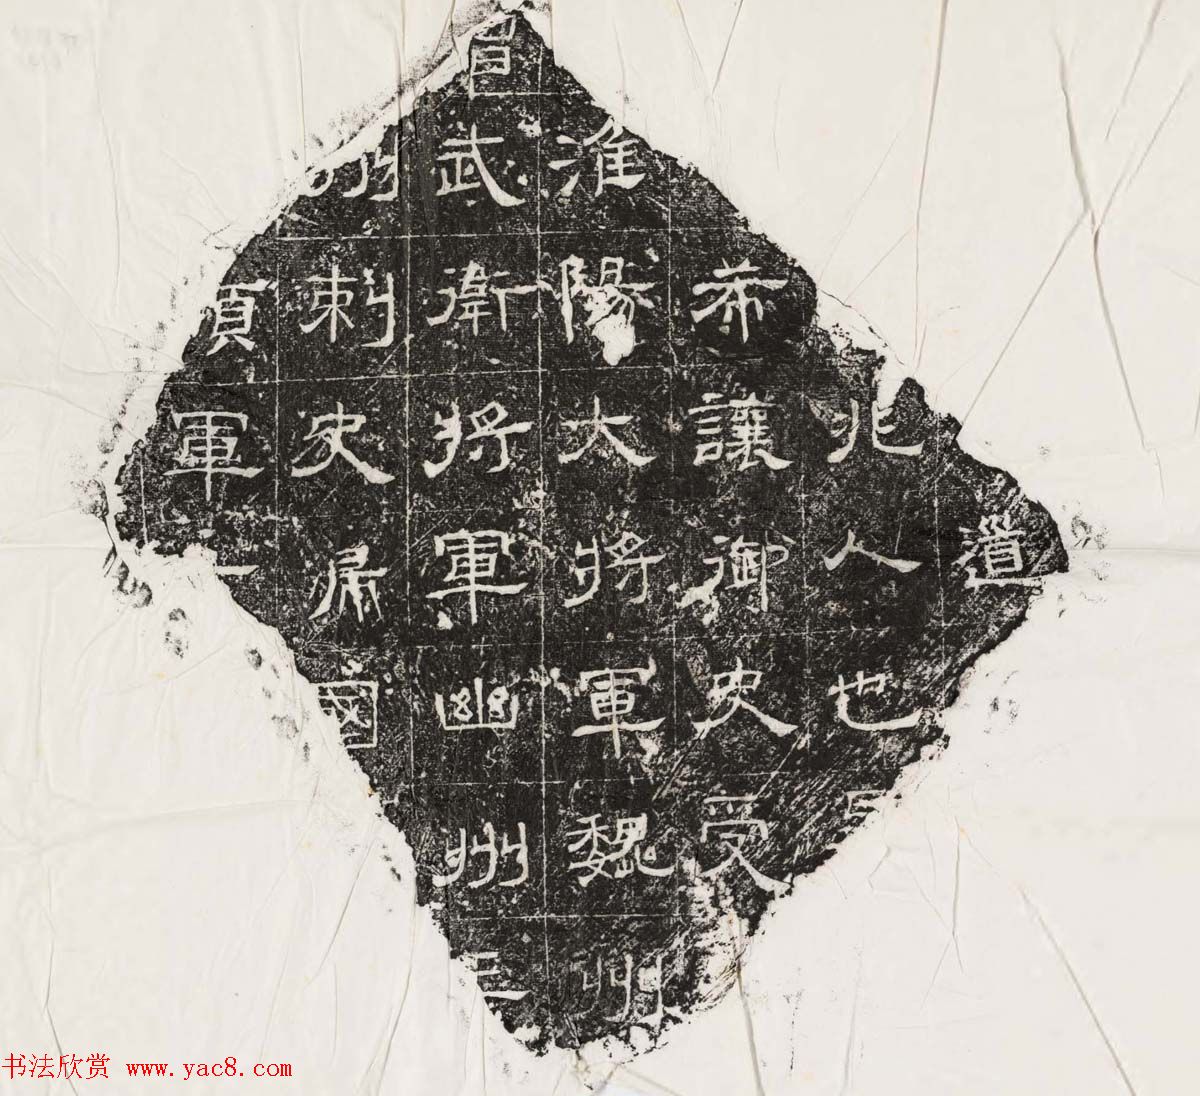 道
兆人也
希讓御史受
淮陽大將軍魏州
武衛將軍幽州
州刺史歸國
軍
书法欣赏 www.yac8.com